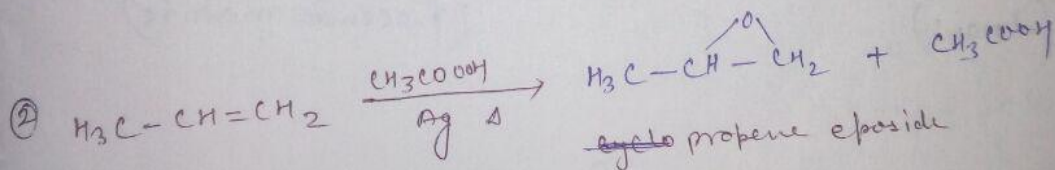 ② H₃C-CH=CH₂ CH₃COOOH Ag Δ → H₃C-CH-CH₂ O + CH₃COOH
cyclo propene epoxide